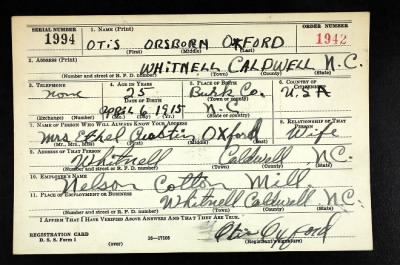 SERIAL NUMBER
1. NAME (Print)
ORDER NUMBER
1994
OTIS ORSBORN OXFORD
1942
2. ADDRESS (Print)
WHITNELL CALDWELL N.C.
(Number and street or R. F. D. number) (Town) (County) (State)
3. TELEPHONE
4. AGE IN YEARS
5. PLACE OF BIRTH
6. COUNTRY OF CITIZENSHIP
none
25
Burk Co.
U.S.A
DATE OF BIRTH
(Town or county)
April 6 1915
N-C
(Mo.) (Day) (Yr.)
(State or country)
7. NAME OF PERSON WHO WILL ALWAYS KNOW YOUR ADDRESS
8. RELATIONSHIP OF THAT PERSON
Mrs Ethel Oxford
Wife
(Mr., Mrs., Miss) (First) (Middle) (Last)
9. ADDRESS OF THAT PERSON
Whitnell Caldwell, NC.
(Number and street or R. F. D. number) (Town) (County) (State)
10. EMPLOYER'S NAME
Nelson Cotton Mill.
11. PLACE OF EMPLOYMENT OR BUSINESS
Whitnell Caldwell NC.
(Number and street or R. F. D. number) (Town) (County) (State)
I AFFIRM THAT I HAVE VERIFIED ABOVE ANSWERS AND THAT THEY ARE TRUE.
REGISTRATION CARD
D. S. S. Form 1
(over)
16-17105
Otis Oxford
(Registrant's signature)